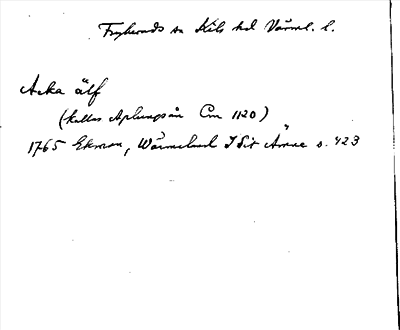 Fryksends sn Kils hd Värml. l.
Acka älf
(kallas Aplungsån Cm 1120)
1765 Ekman, Wärmeland I Sit Ämne s. 423